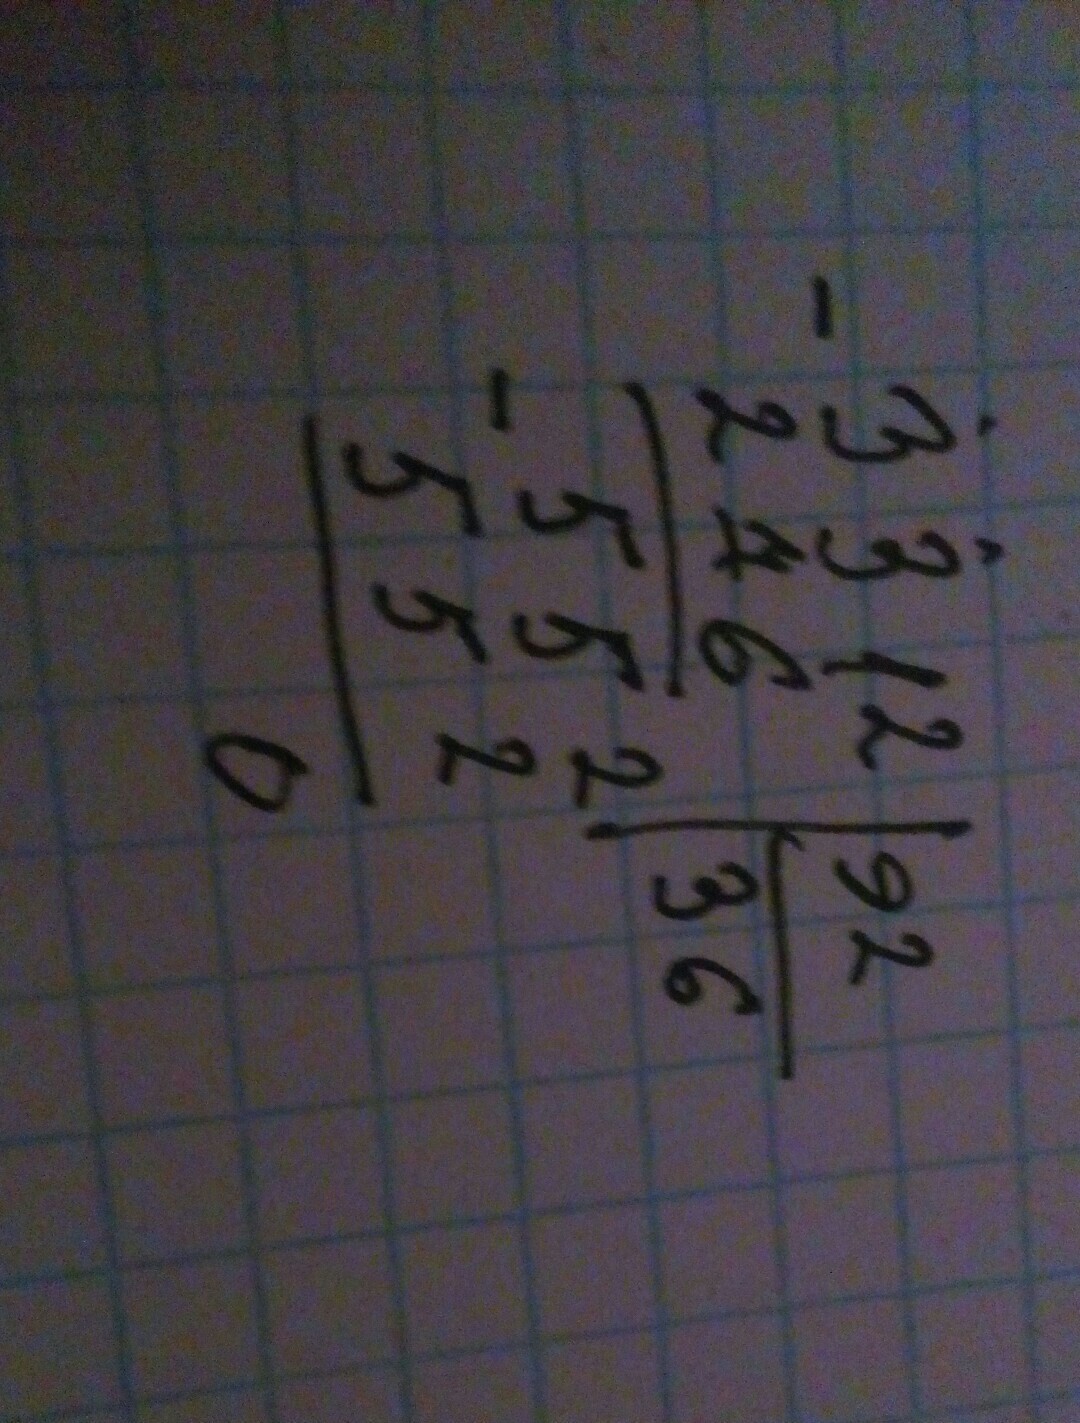 3312 92
- 276 36
552
- 552
0